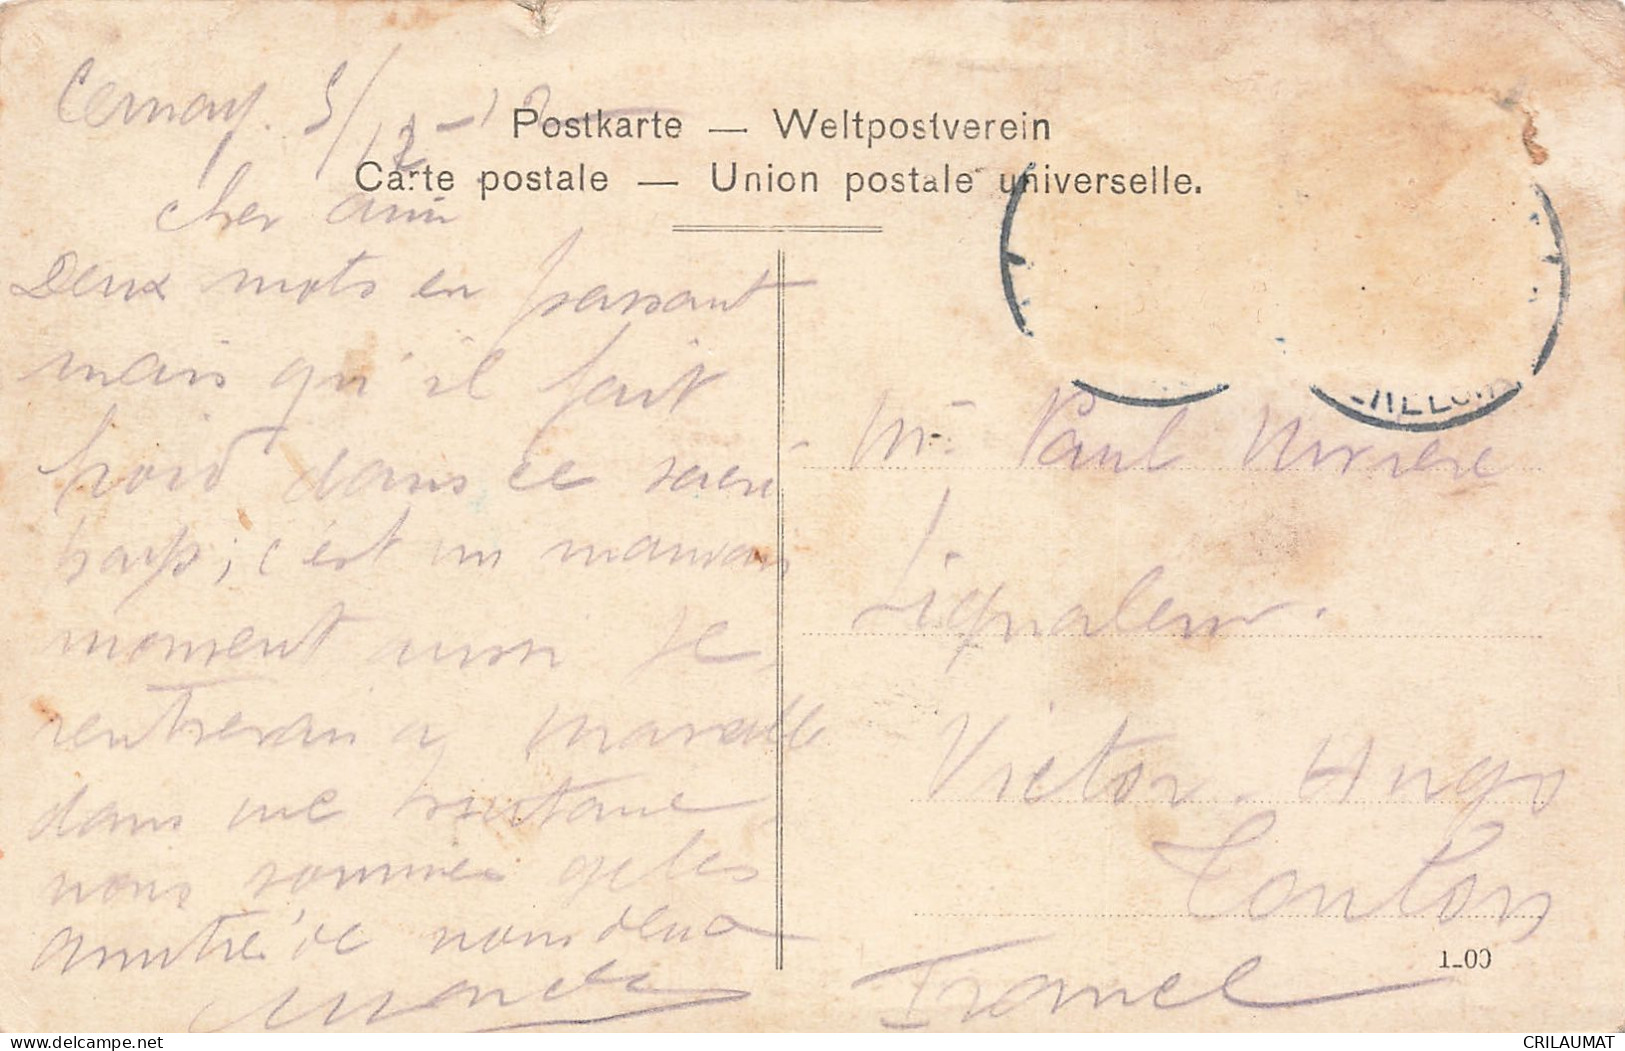 Cernay. 5/12-12
Postkarte — Weltpostverein
Carte postale — Union postale universelle.
cher ami
Deux mots en passant
mais qu'il fait
froid dans ce sacré
pays; c'est un mauvais
moment aussi je
rentrerais a
dans une
nous sommes gelés
amitié de nous deux
Mr. Paul
Signaleur.
Victor-Hugo
Toulon
France
1-09
delcampe.net
CRILAUMAT